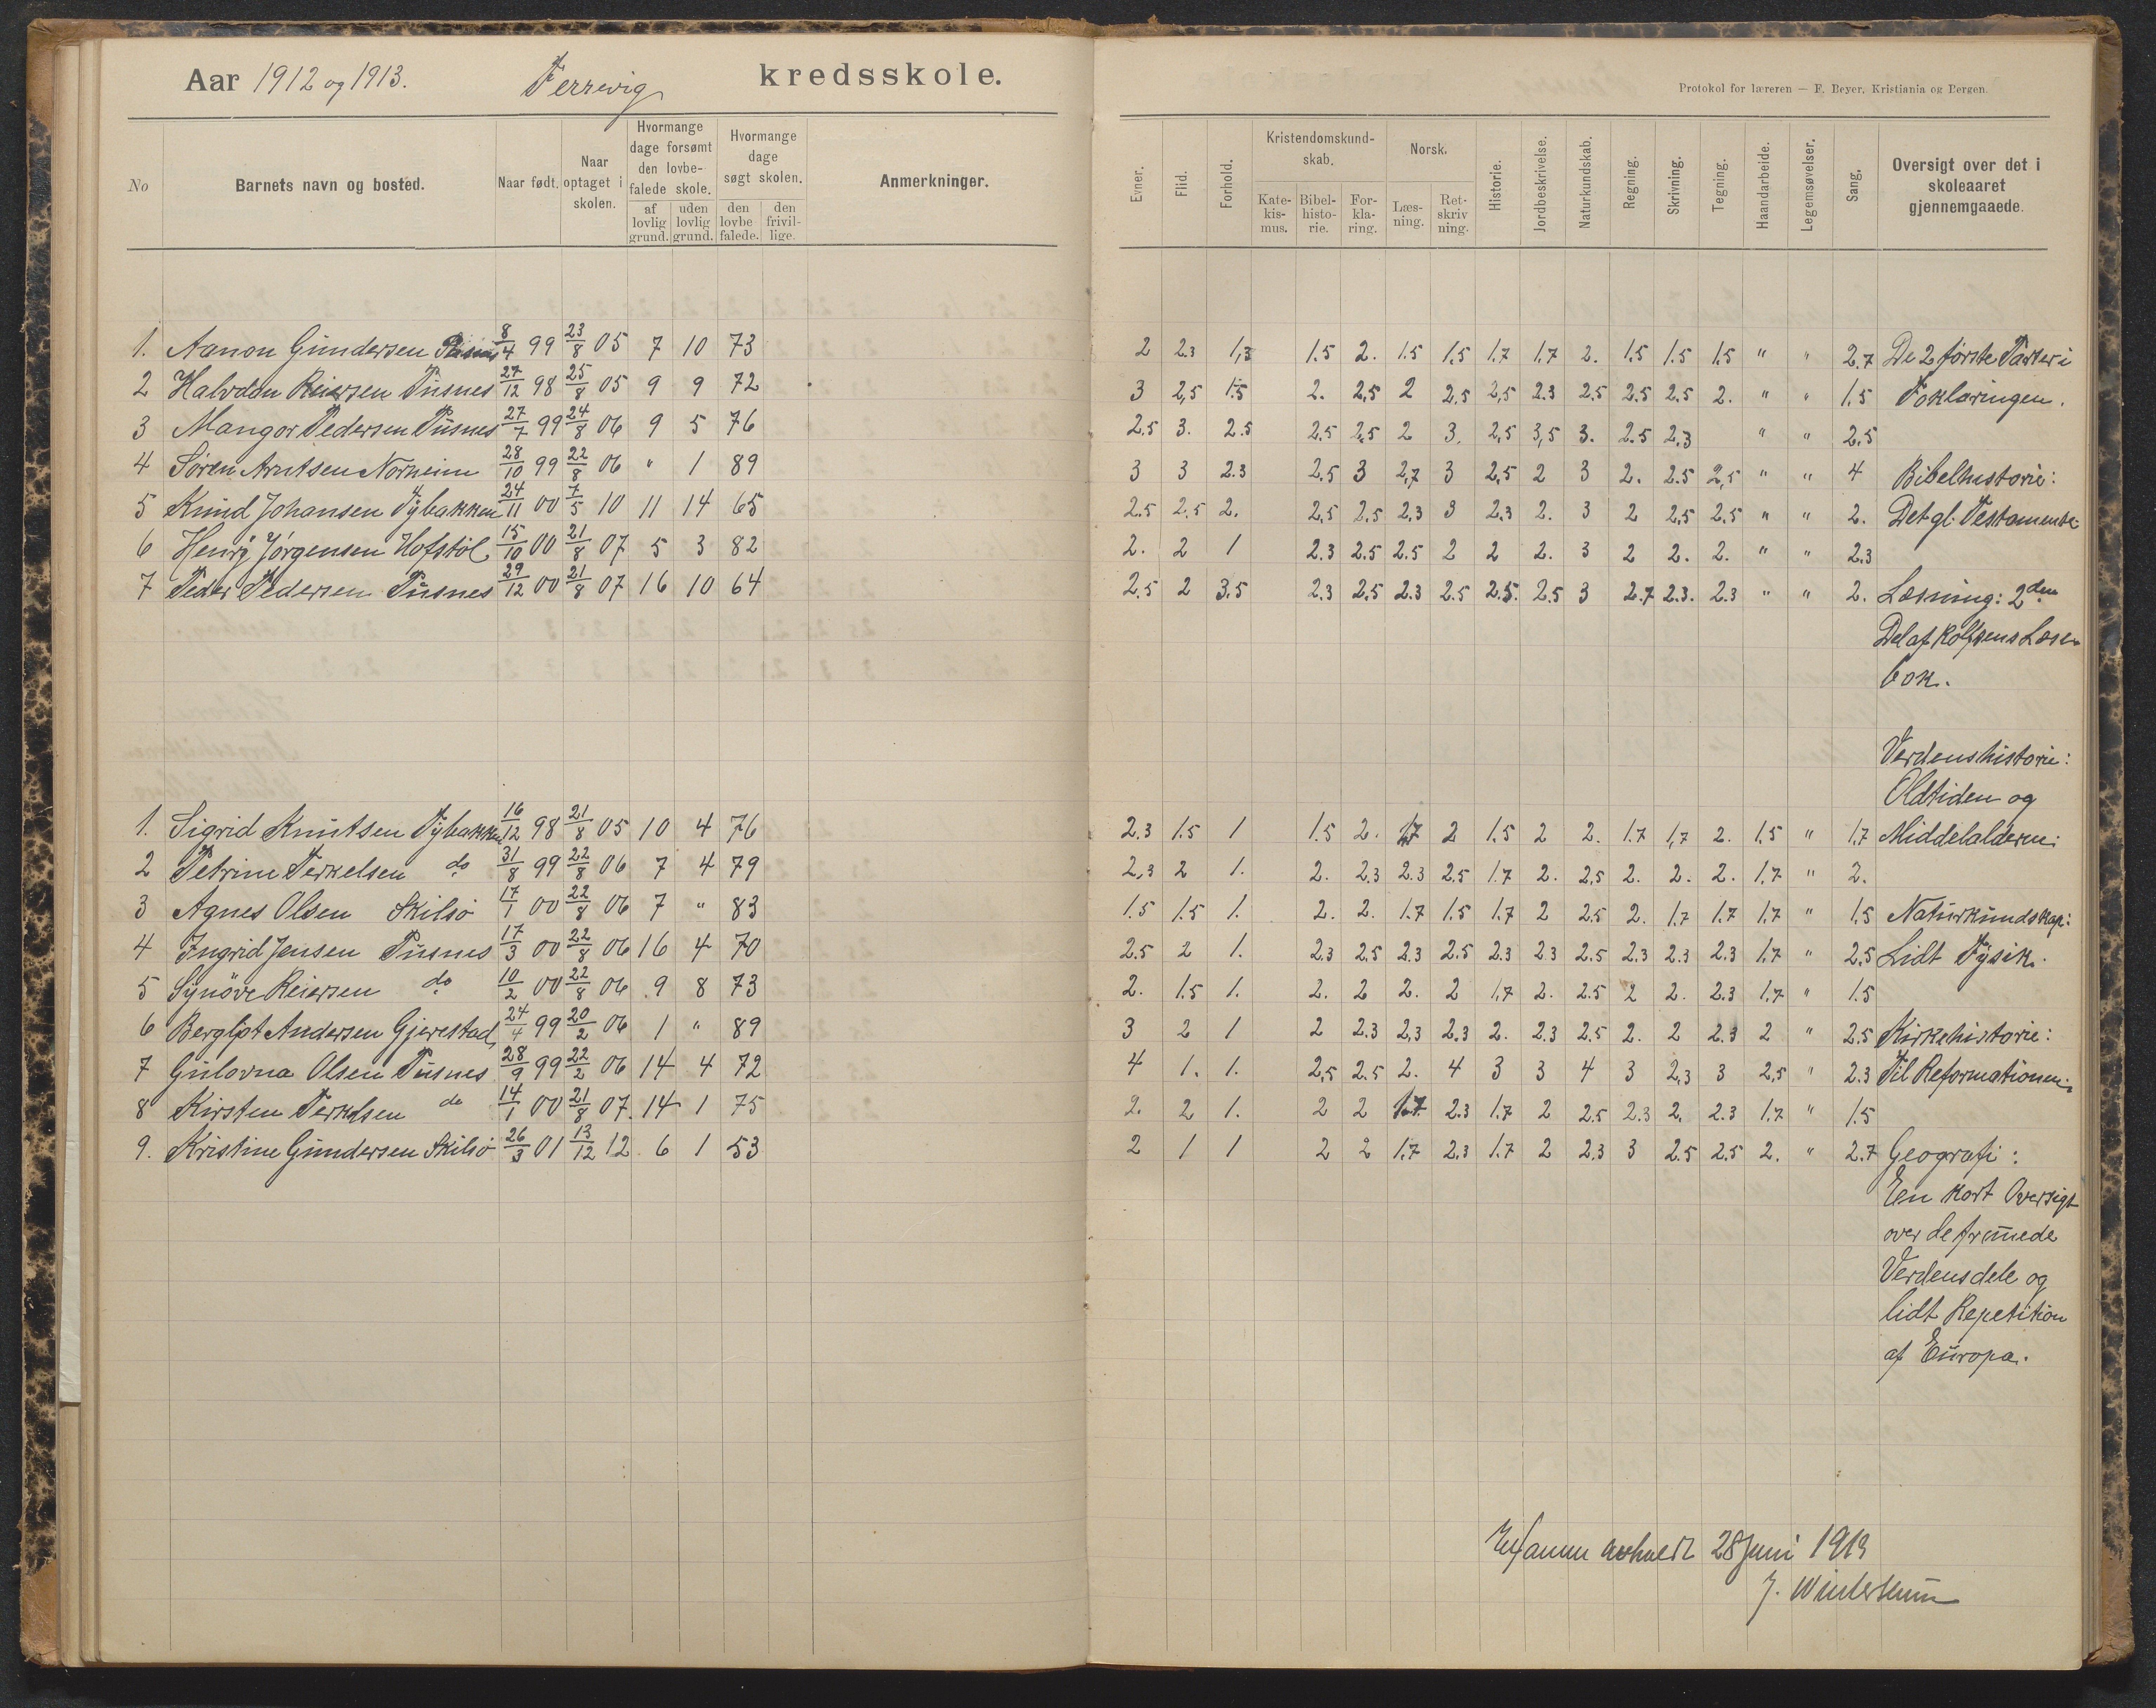 Aar 1912 og 1913. Ferrevig kredsskole.
Protokol for læreren — F. Beyer, Kristiania og Bergen.
No Barnets navn og bosted. Naar født. Naar optaget i skolen. Hvormange dage forsømt den lovbefalede skole. af lovlig grund. uden lovlig grund. Hvormange dage søgt skolen. den lovbefalede. den frivillige. Anmerkninger.
Evner. Flid. Forhold. Kristendomskundskab. Katekismus. Bibelhistorie. Forklaring. Norsk. Læsning. Retskrivning. Historie. Jordbeskrivelse. Naturkundskab. Regning. Skrivning. Tegning. Haandarbeide. Legemsøvelser. Sang. Oversigt over det i skoleaaret gjennemgaaede.
1. Aanon Gundersen Pusnes 8/4 99 23/8 05 7 10 73 2 2.3 1,3 1.5 2. 1.5 1.5 1.7 1.7 2. 1.5 1.5 1.5 " " 2.7 De 2 første Parter i
2 Halvdan Reiersen Pusnes 27/12 98 25/8 05 9 9 72 3 2,5 1.5 2. 2,5 2 2,5 2,5 2.3 2.5 2.5 2.5 2. " " 1.5 Foklaringen.
3 Mangor Pedersen Pusnes 27/7 99 24/8 06 9 5 76 2.5 3. 2.5 2,5 2,5 2 3. 2,5 3,5 3. 2.5 2,3 " " 2,5
4 Søren Arntsen Norheim 28/10 99 22/8 06 " 1 89 3 3 2.3 2,5 3 2,7 3 2,5 2 3 2. 2.5 2,5 " " 4 Bibelhistorie:
5 Knud Johansen Tybakken 24/11 00 7/5 10 11 14 65 2.5 2.5 2. 2,5 2.5 2,3 3 2.3 2. 3 2 2,5 2.5 " " 2. Det gl. Testamente
6 Henrÿ Jørgensen Hofstøl 15/10 00 21/8 07 5 3 82 2. 2 1 2.3 2.5 2.5 2 2 2. 3 2 2. 2. " " 2,3
7 Peder Pedersen Pusnes 29/12 00 21/8 07 16 10 64 2,5 2 3,5 2.3 2,5 2.3 2.5 2.5. 2.5 3 2.7 2.3. 2.3 " " 2. Læsning: 2den
Del af Rolfsens Læse
bok.
Verdenshistorie:
Oldtiden og
1. Sigrid Knutsen Tybakken 16/12 98 21/8 05 10 4 76 2.3 1.5 1 1.5 2. 1.7 2 1.5 2 2. 1.7 1,7 2. 1.5 " 1.7 Middelalderen.
2 Petrine Terkelsen do 31/8 99 22/8 06 7 4 79 2,3 2 1. 2. 2.3 2.3 2.5 1.7 2. 2,5 2. 2. 2. 1,7 " 2.
3 Agnes Olsen Skilsø 17/1 00 22/8 06 7 " 83 1.5 1.5 1. 2. 2. 1.7 1.5 1.7 2 2.5 2. 1.7 1.7 1.7 " 1.5 Naturkundskap:
4 Ingrid Jensen Pusnes 17/3 00 22/8 06 16 4 70 2.5 2 1. 2.3 2.5 2.3 2.5 2.3 2.3 2.5 2.3 2.3 2.3 1.7 " 2,5 Lidt Fysik.
5 Synöve Reiersen do 10/2 00 22/8 06 9 8 73 2. 1.5 1. 2. 2 2. 2 1,7 2. 2.5 2 2. 2.3 1,7 " 1.5
6 Bergljot Andersen Gjerestad 24/4 99 20/2 06 1 " 89 3 2 1 2 2.3 2,3 2.3 2. 2.3 2.5 2. 2 2.3 2 " 2.5 Kirkehistorie:
7 Gulovna Olsen Pusnes 28/9 99 22/2 06 14 4 72 4 1. 1. 2,5 2.5 2. 4 3 3 4 3 2,3 3 2,5 " 2.3 Til Reformationen.
8 Kirsten Terkelsen do 14/1 00 21/8 07. 14 1 75 2. 2 1. 2 2 1.7 2.3 1.7 2 2.5 2.3 2. 2.3 1.7 " 1.5
9. Kristine Gundersen Skilsø 26/3 01 13/12 12 6 1 53 2 1 1 2 2 1.7 2.3 1.7 2 2.3 3 2.5 2.5 2. " 2.7 Geografi:
Een kort Oversigt
over de fremmede
Verdensdele og
lidt Repetition
af Europa.
Exsamen avholdt 28 Juni 1913